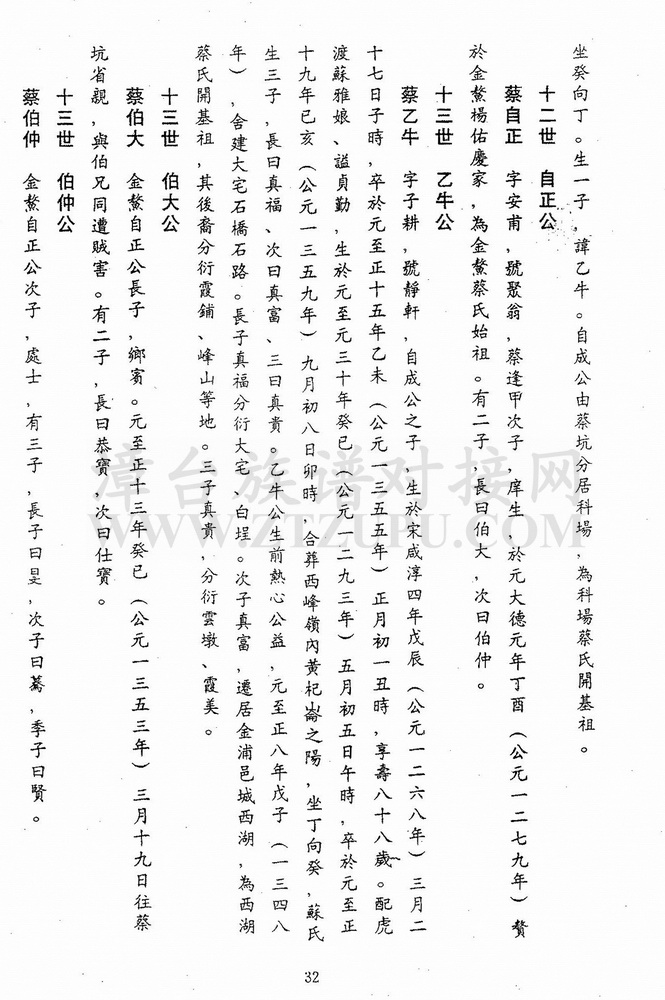 坐癸向丁。生一子，諱乙牛。自成公由蔡坑分居科場，為科場蔡氏開基祖。
十二世　自正公
蔡自正　字安甫，號聚翁，蔡逢甲次子，庠生，於元大德元年丁酉（公元一二七九年）贅
於金鰲楊佑慶家，為金鰲蔡氏始祖。有二子，長曰伯大，次曰伯仲。
十三世　乙牛公
蔡乙牛　字子耕，號靜軒，自成公之子，生於宋咸淳四年戊辰（公元一二六八年）三月二
十七日子時，卒於元至正十五年乙未（公元一三五五年）正月初一丑時，享壽八十八歲。配虎
渡蘇雅娘、謚貞勤，生於元至元三十年癸巳（公元一二九三年）五月初五日午時，卒於元至正
十九年已亥（公元一三五九年）九月初八日卯時，合葬西峰嶺內黃杞崙之陽，坐丁向癸，蘇氏
生三子，長曰真福、次曰真富、三曰真貴。乙牛公生前熱心公益，元至正八年戊子（一三四八
年），舍建大宅石橋石路。長子真福分衍大宅、白埕。次子真富，遷居金浦邑城西湖，為西湖
蔡氏開基祖，其後裔分衍霞鋪、峰山等地。三子真貴，分衍雲墩、霞美。
十三世　伯大公
蔡伯大　金鰲自正公長子，鄉賓。元至正十三年癸巳（公元一三五三年）三月十九日往蔡
坑省親，與伯兄同遭賊害。有二子，長曰恭寶，次曰仕寶。
十三世　伯仲公
蔡伯仲　金鰲自正公次子，處士，有三子，長子曰旻，次子曰騫，季子曰賢。
32
漳台族谱对接网
WWW.ZTZUPU.COM